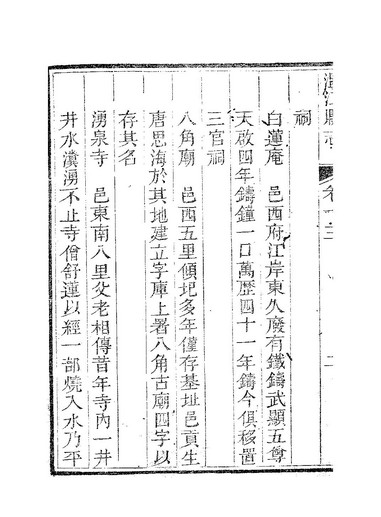 溫江縣志
卷十三
二
祠
白蓮庵　邑西府江岸東久廢有鐵鑄武顯五尊
天啟四年鑄鐘一口萬歷四十一年鑄今俱移置
三官祠
八角廟　邑西五里傾圮多年僅存基址邑貢生
唐思海於其地建立字庫上署八角古廟四字以
存其名
湧泉寺　邑東南八里父老相傳昔年寺內一井
井水瀵湧不止寺僧舒蓮以經一部燒入水乃平